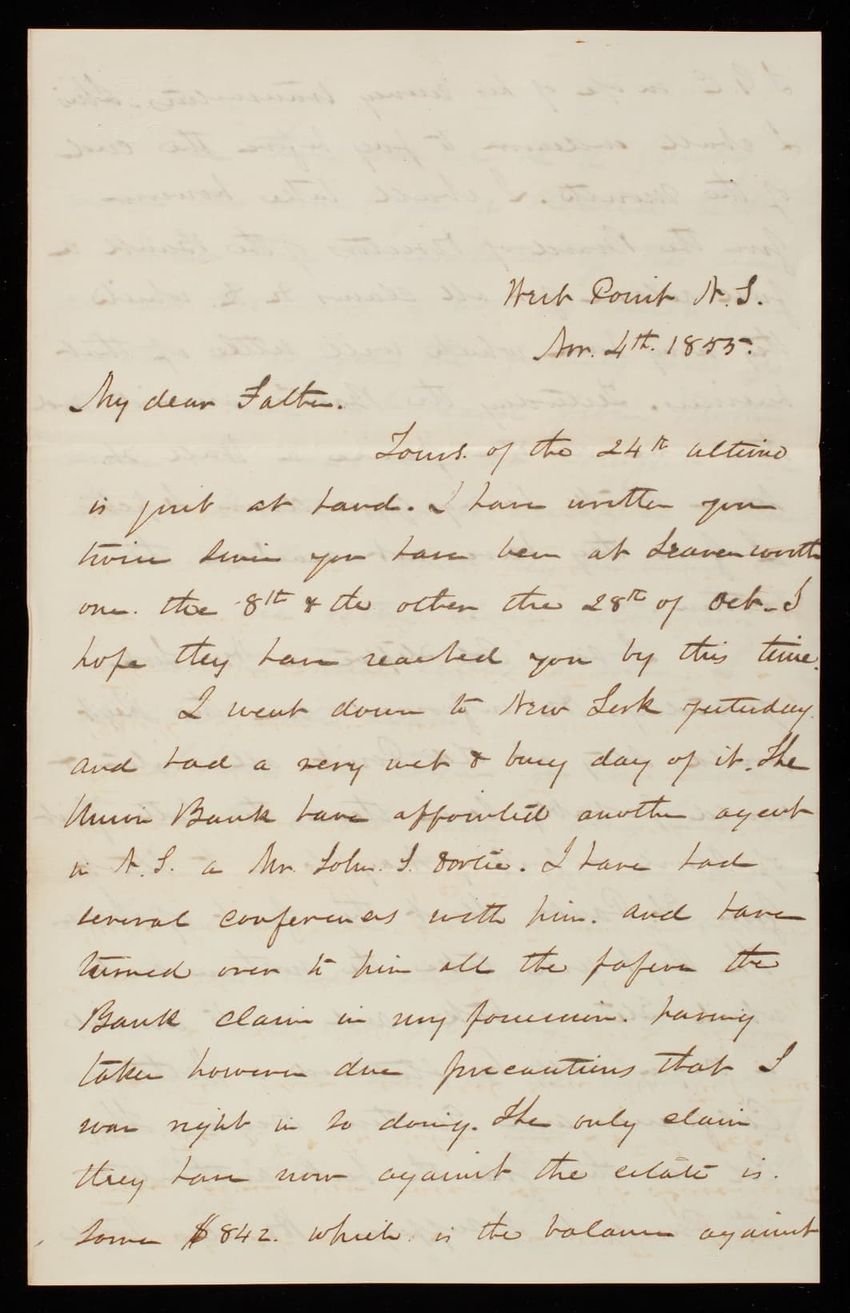 West Point N.Y.
Nov. 4th. 1855.
My dear Father.
Yours. of the 24th ultimo
is just at hand. I have written you
twice since you have been at Leavenworth
one. the 8th & the other the 28th of Oct. I
hope they have reached you by this time.
I went down to New York yesterday.
and had a very wet & busy day of it. The
Union Bank have appointed another agent
in N.Y. a Mr. John. S.
several conferences with him. and have
turned over to him all the papers the
Bank claim in my possession. having
taken however due precautions that I
was right in so doing. The only claim
they have now against the estate is.
some $842. which. is the balance against